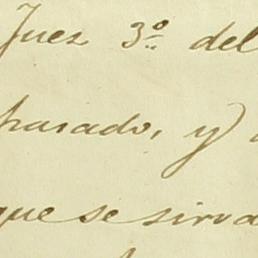 Juez 3º del
pasado, y
que se sirva